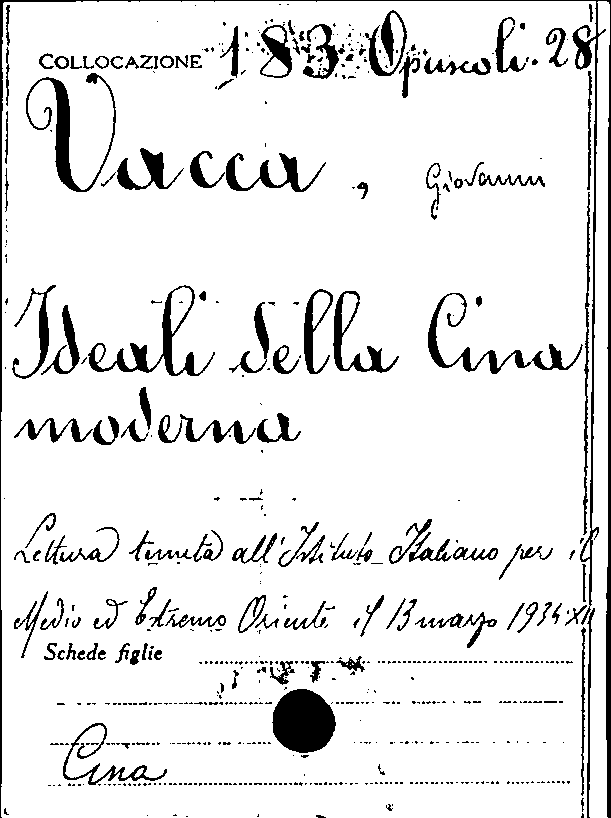 COLLOCAZIONE 183 Opuscoli. 28
Vacca, Giovanni
Ideali della Cina
moderna
Lettura tenuta all'Istituto Italiano per il
Medio ed Estremo Oriente il 13 marzo 1934-XII
Schede figlie
Cina